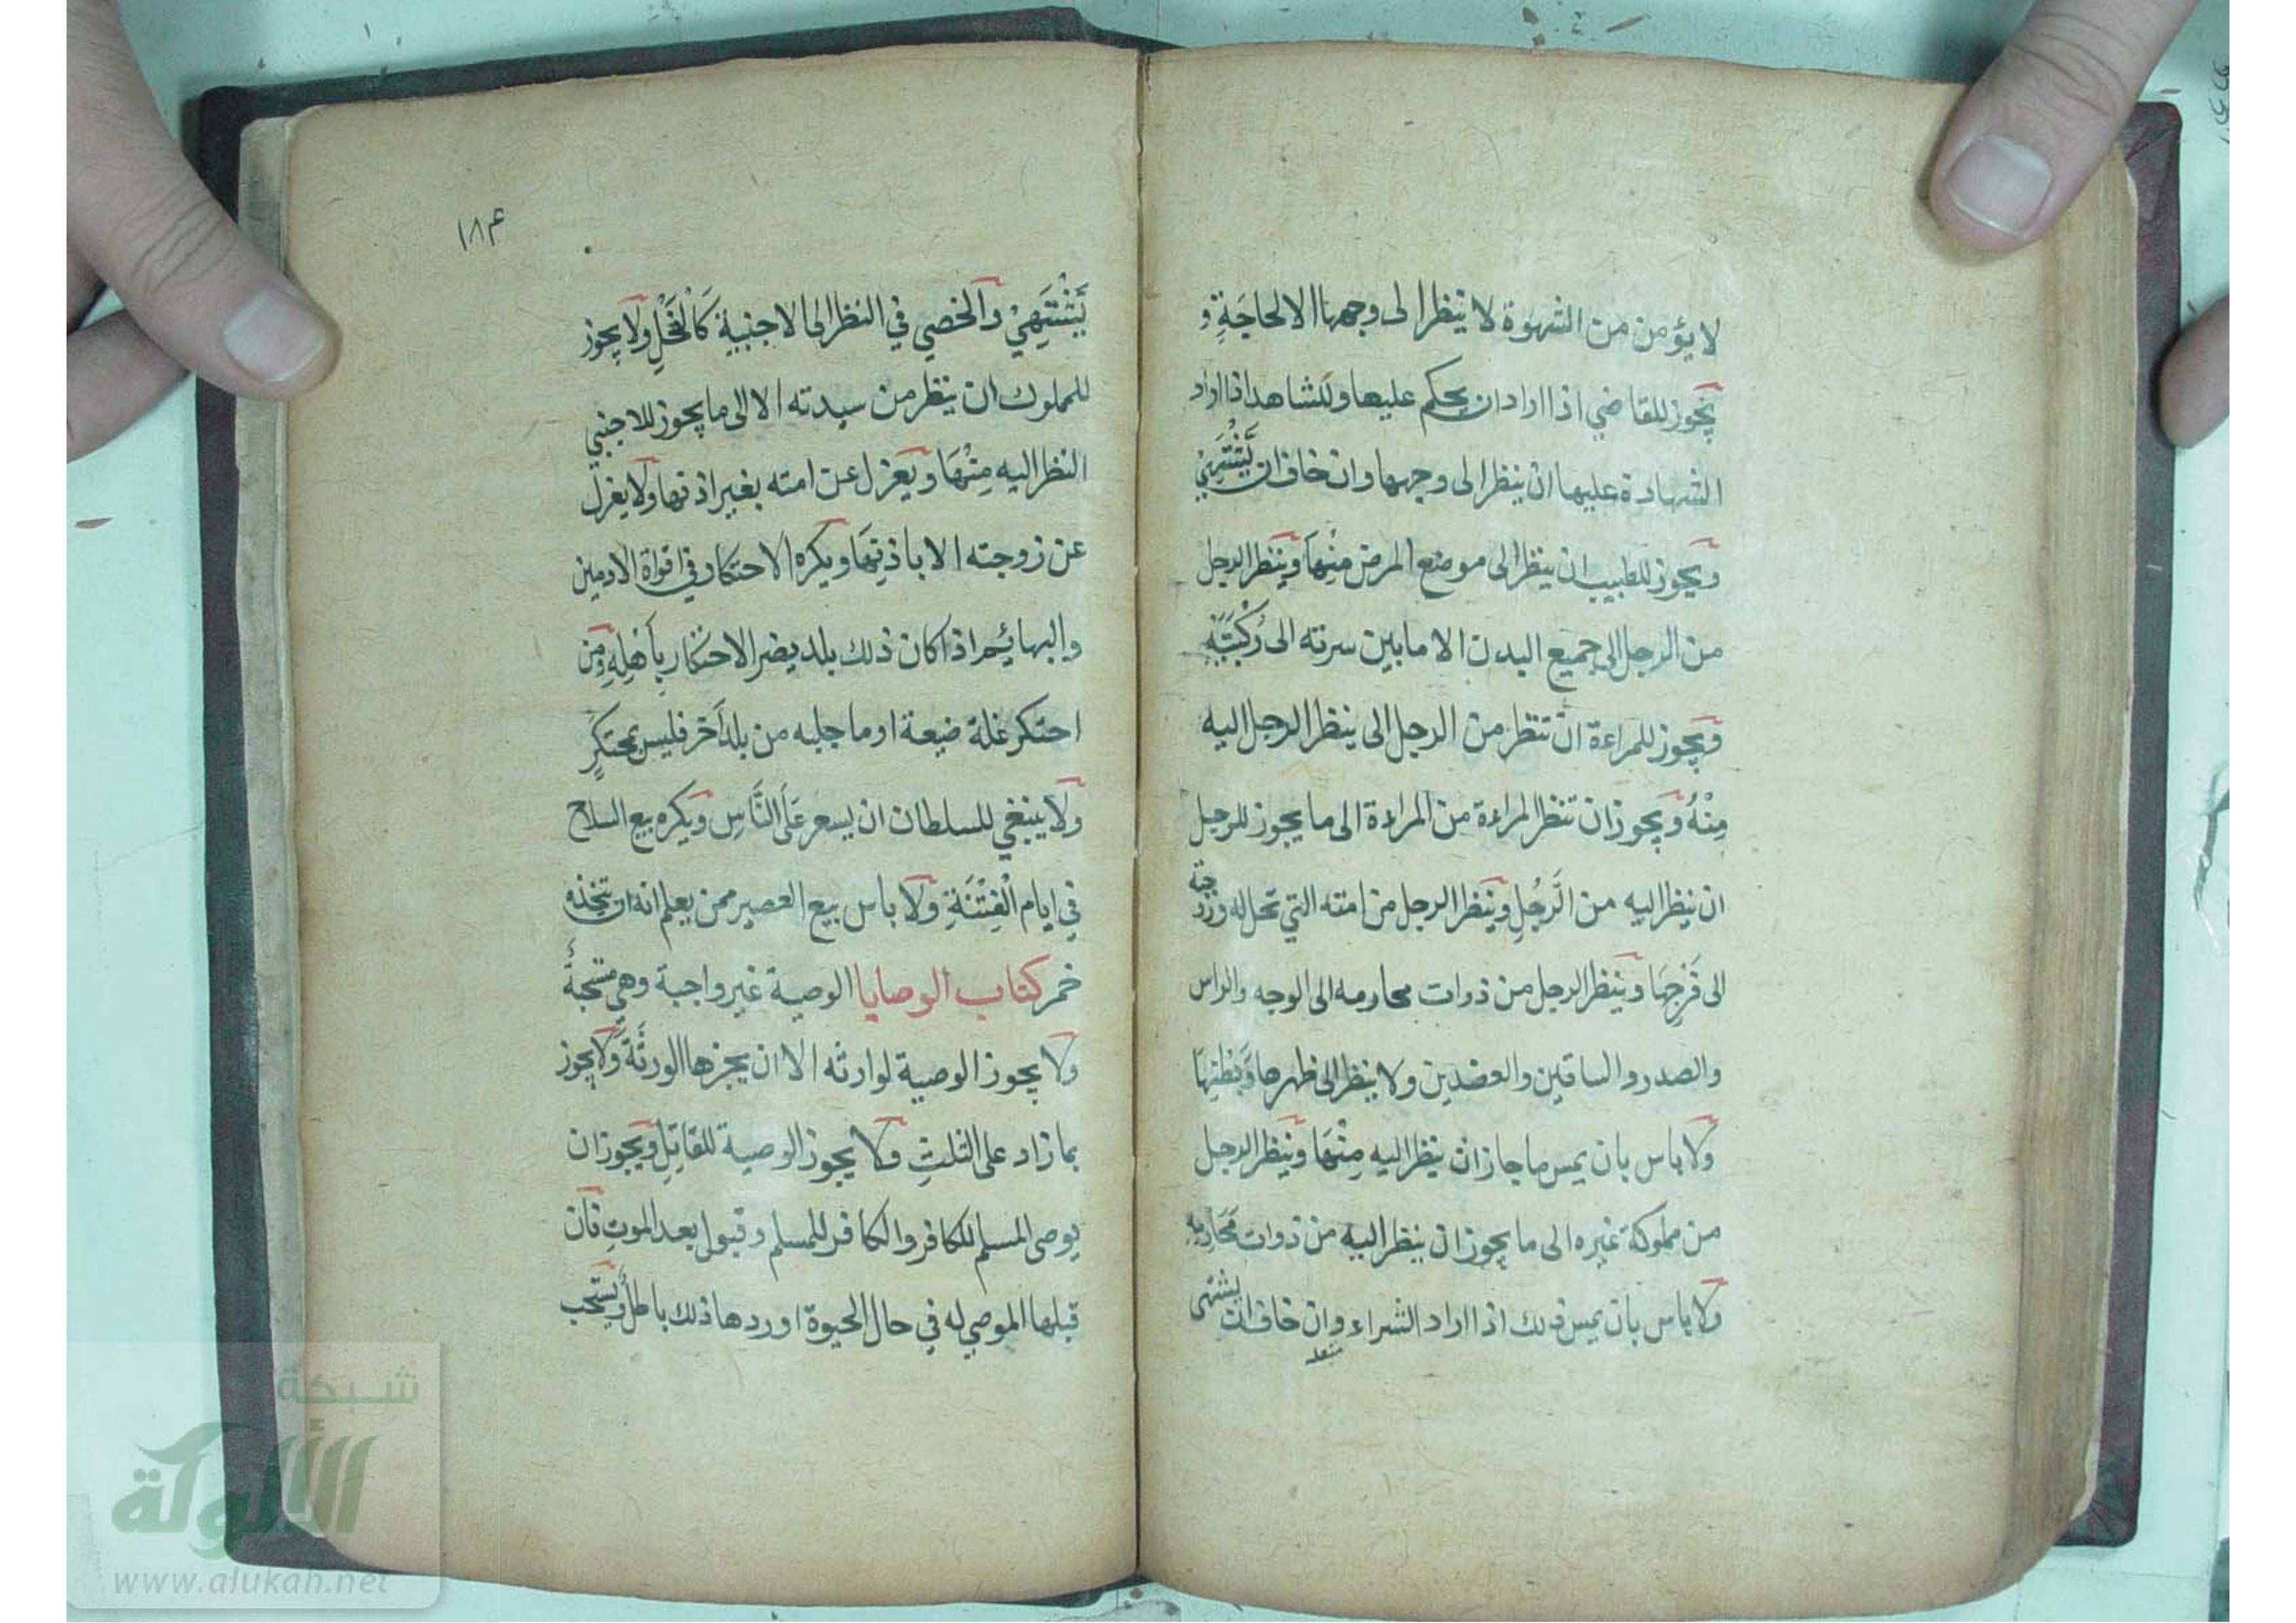 لا يؤمن من الشهوة لا ينظر الى وجهها الا لحاجَةٍ و
يجوز للقاضي اذا اراد ان يحكم عليها وللشاهد اذا اراد
الشهادة عليها ان ينظر الى وجهها وان خاف ان يَّشْتَهِيْ
ويجوز للطبيب ان ينظر الى موضع المرض مِنْهَا وينظر الرجل
من الرجل الى جميع البدن الا ما بين سرته الى رُكْبَتَهٖ
ويجوز للمراءة ان تنظر من الرجل الى ينظر الرجل اليه
مِنْهُ ويجوز ان تنظر المراءة من المراءة الى ما يجوز للرجل
ان ينظر اليه من الرَّجُلِ وينظر الرجل من امته التي تحل له وزوجته
الى فَرْجِهَا وينظر الرجل من ذوات محارمه الى الوجه والراس
والصدر والساقين والعضدين ولا ينظر الى ظهرها وَبَطْنِهَا
ولا باس بان يمس ما جاز ان ينظر اليه مِنْهَا وينظر الرجل
من مملوكة غيره الى ما يجوز ان ينظر اليه من ذوات مَحَارِمِهٖ
ولا باس بان يمس ذلك اذا اراد الشراء وان خاف ان يشتهى
١٨۴
يَّشْتَهِيْ والخصي في النظر الى الاجنبية كَالْفَحْلِ ولا يجوز
للمملوك ان ينظر من سيدته الا الى ما يجوز للاجنبي
النظر اليه مِنْهَا ويعزل عن امته بغير اذنها ولا يعزل
عن زوجته الا باذنِهَا ويكره الاحتكار في اقواة الادميين
والبهائم اذا كان ذلك بلد يضر الاحتكار بِأَهْلِهٖ ومن
احتكر غلة ضيعة او ما جلبه من بلد اخر فليس بمحتكرٍ
ولا ينبغي للسلطان ان يسعر عَلَى النَّاسِ ويكره بيع السلاح
في ايام الْفِتْنَةِ ولا باس بيع العصير ممن يعلم انه ان يتخذه
خمر كتاب الوصايا الوصية غير واجبة وهي مستحبةٌ
ولا يجوز الوصية لوارثه الا ان يجزها الورثَةُ ولا يجوز
بما زاد على الثلثِ ولا يجوز الوصية للقاتِلِ ويجوز ان
يوصى المسلم للكافر والكافر للمسلم وقبول بعد الموتِ فان
قبلها الموصي له في حال الحيوة او ردها ذلك باطل ويستحب
شبكة
الألوكة
www.alukah.net